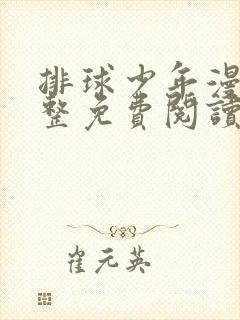 排球少年漫
整免費閱讀
崔元英